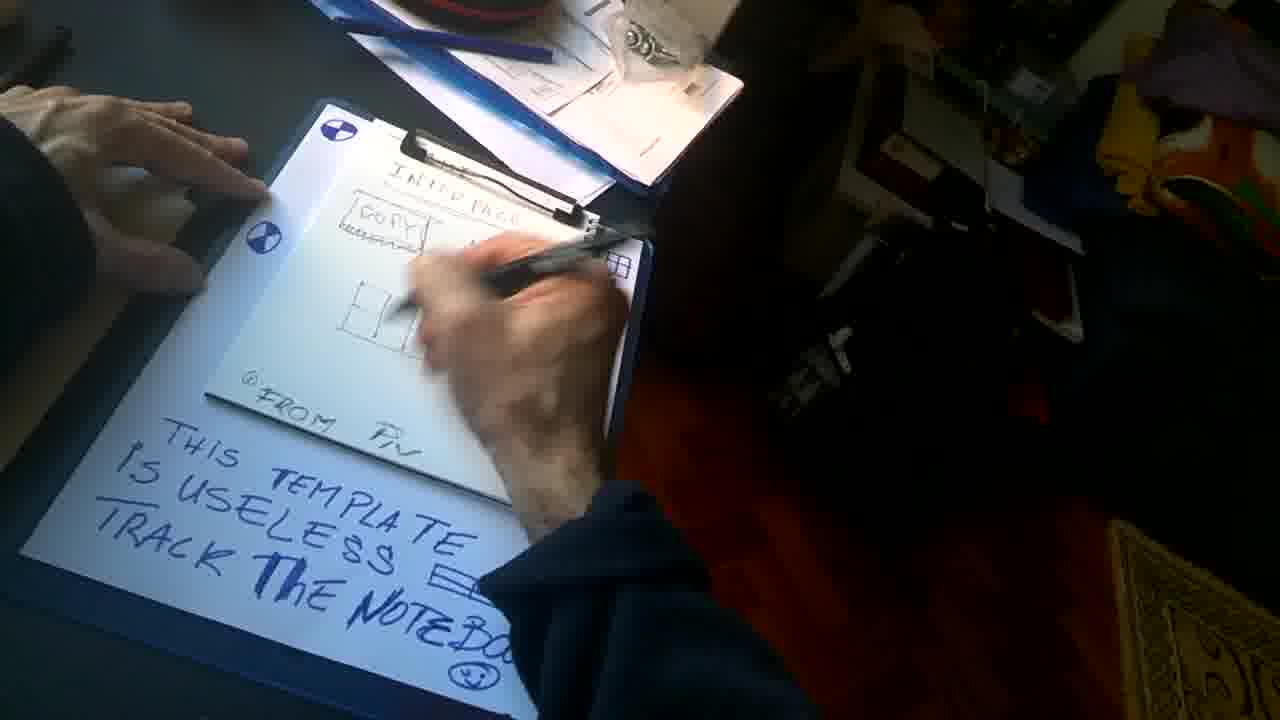 INTERFACE
COPY
FROM
THIS TEMPLATE
IS USELESS
TRACK THE NOTEBOO